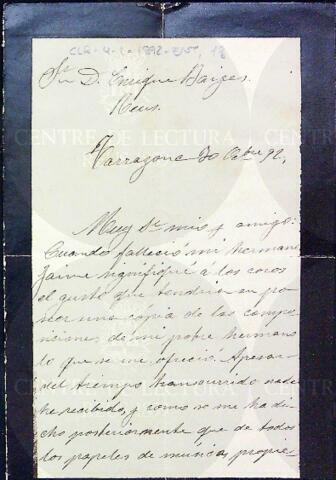 CLR-4-1-1892-
Sr. D. Enrique Barges.
Reus.
CENTRE DE LECTURA
Tarragona 30 Octe 92.
Muy Sr. mio y amigo:
Cuando falleció mi hermano
Jaime signifiqué a los coros
el gusto que tendria en po-
seer una copia de las compo-
siciones de mi pobre hermano
lo que se me ofreció. Apesar
del tiempo transcurrido nada
he recibido, y como se me ha di-
cho posteriormente que de todos
los papeles de música propie-